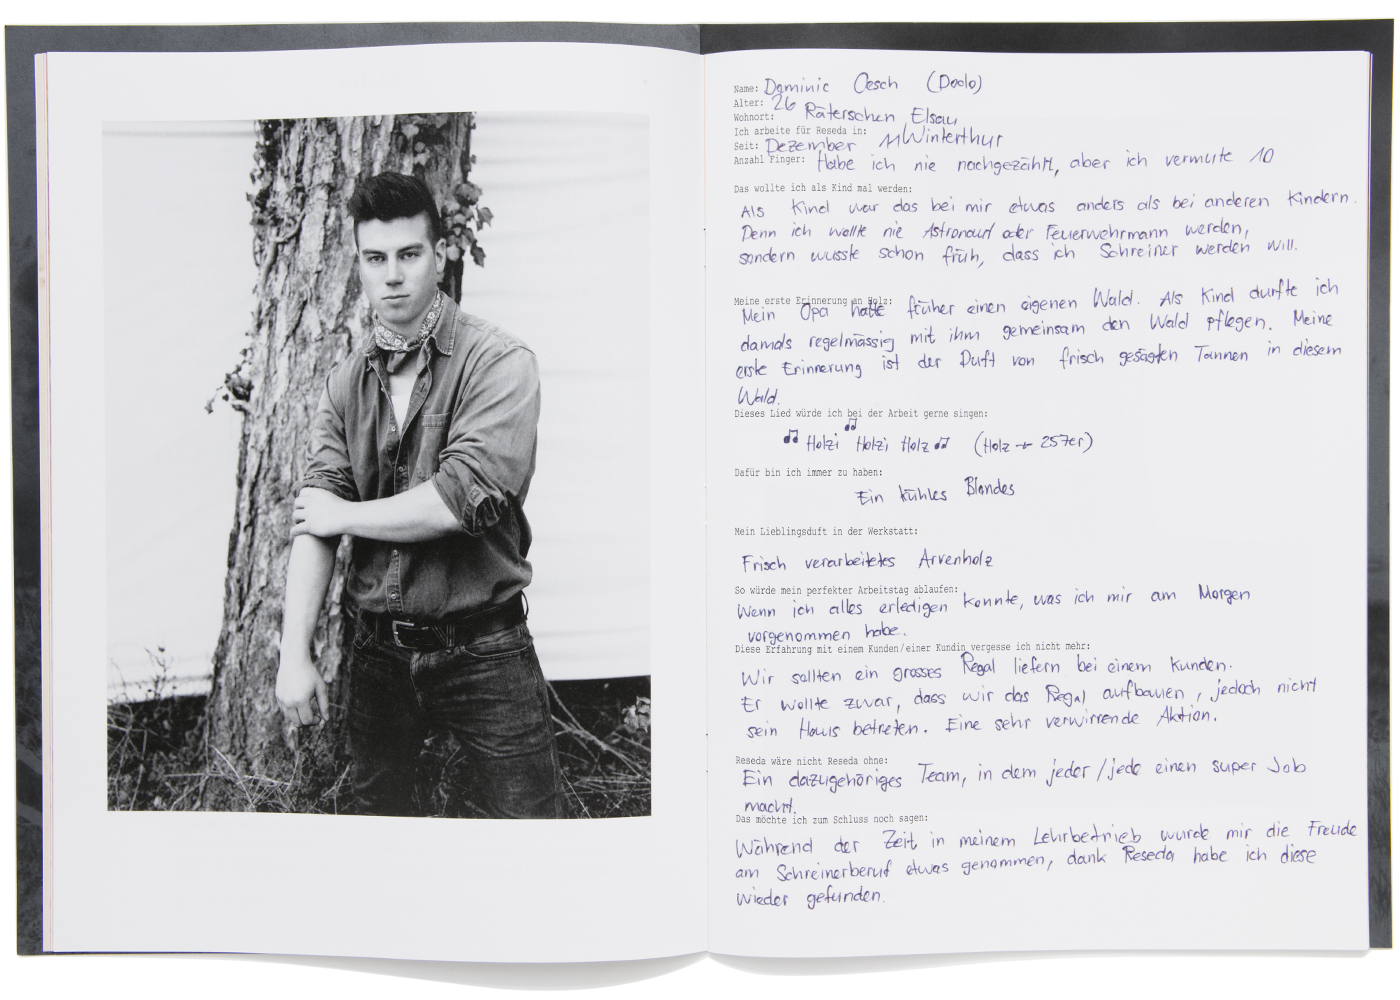 Name: Dominic Oesch (Dodo)
Alter: 26
Wohnort: Räterschen Elsau
Ich arbeite für Reseda in: Winterthur
Seit: Dezember
Anzahl Finger: Habe ich nie nachgezählt, aber ich vermute 10
Das wollte ich als Kind mal werden:
Als Kind war das bei mir etwas anders als bei anderen Kindern.
Denn ich wollte nie Astronaut oder Feuerwehrmann werden,
sondern wusste schon früh, dass ich Schreiner werden will.
Meine erste Erinnerung an Holz:
Mein Opa hatte früher einen eigenen Wald. Als Kind durfte ich
damals regelmässig mit ihm gemeinsam den Wald pflegen. Meine
erste Erinnerung ist der Duft von frisch gesägten Tannen in diesem
Wald.
Dieses Lied würde ich bei der Arbeit gerne singen:
♫ Holzi ♫ Holzi Holz ♫ (Holz - 257er)
Dafür bin ich immer zu haben:
Ein kühles Blondes
Mein Lieblingsduft in der Werkstatt:
Frisch verarbeitetes Arvenholz
So würde mein perfekter Arbeitstag ablaufen:
Wenn ich alles erledigen konnte, was ich mir am Morgen
vorgenommen habe.
Diese Erfahrung mit einem Kunden/einer Kundin vergesse ich nicht mehr:
Wir sollten ein grosses Regal liefern bei einem Kunden.
Er wollte zwar, dass wir das Regal aufbauen, jedoch nicht
sein Haus betreten. Eine sehr verwirrende Aktion.
Reseda wäre nicht Reseda ohne:
Ein dazugehöriges Team, in dem jeder/jede einen super Job
macht.
Das möchte ich zum Schluss noch sagen:
Während der Zeit in meinem Lehrbetrieb wurde mir die Freude
am Schreinerberuf etwas genommen, dank Reseda habe ich diese
wieder gefunden.